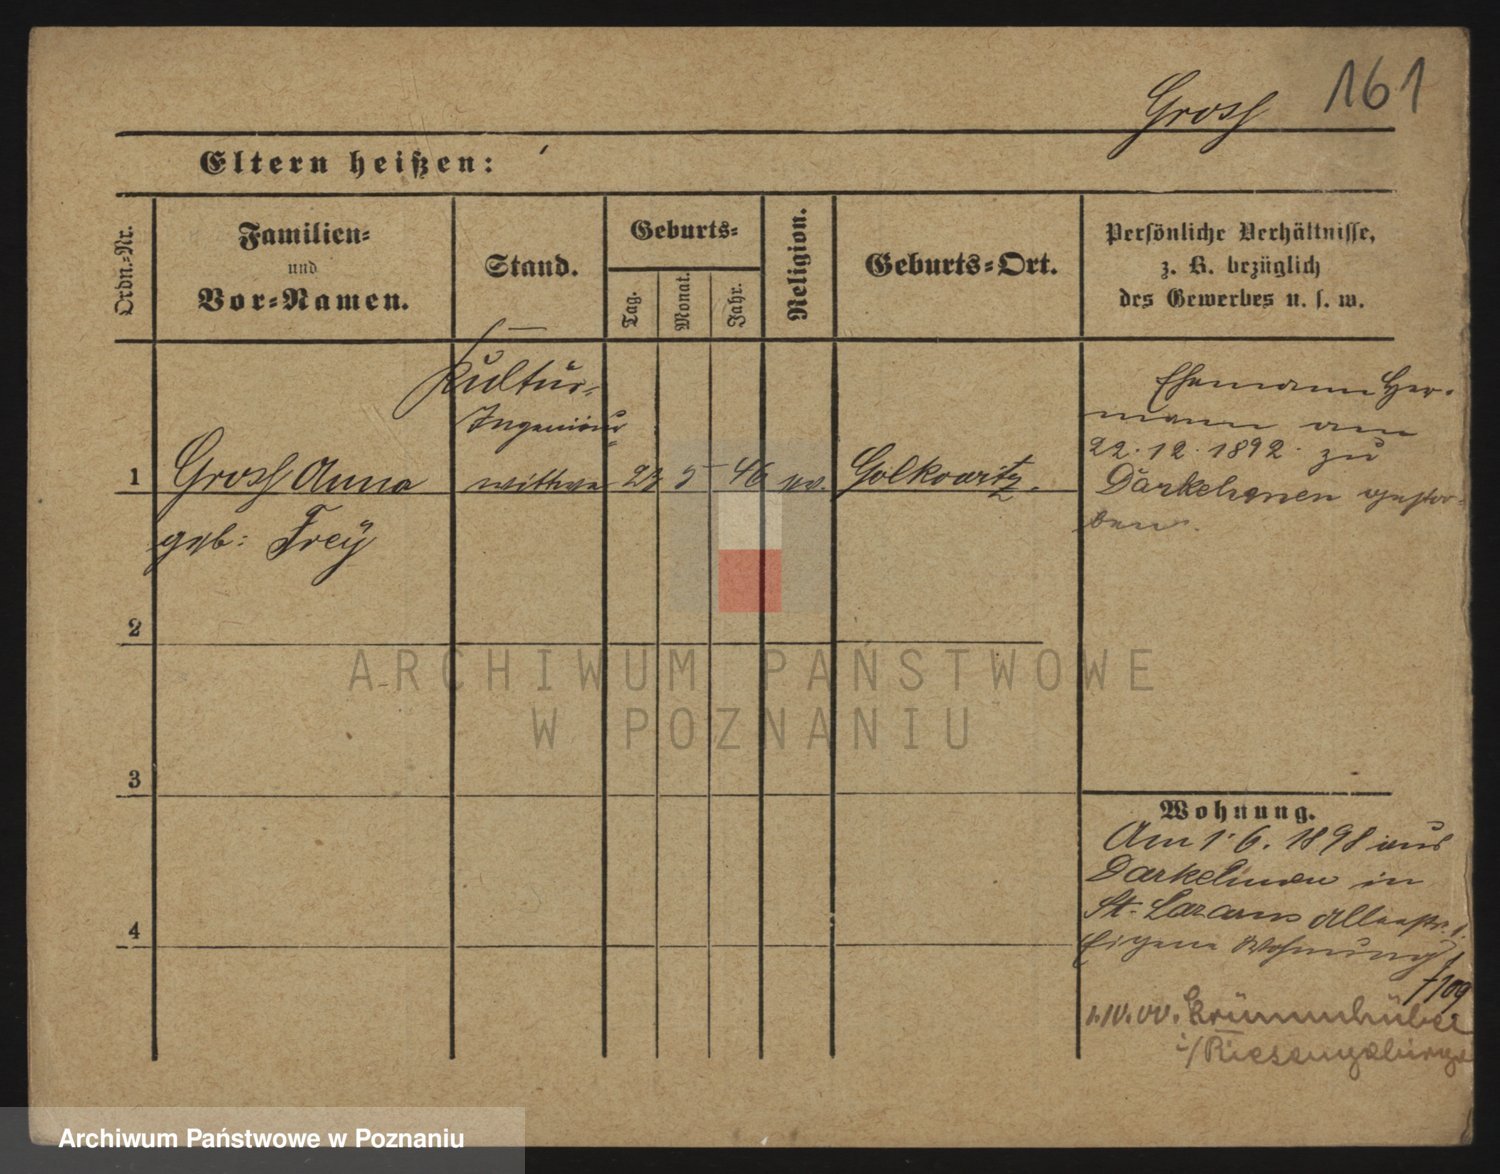 161
Grosz
Eltern heißen:
Ordn.-Nr.
Familien-
und
Vor-Namen.
Stand.
Geburts-
Tag.
Monat.
Jahr.
Religion.
Geburts-Ort.
Persönliche Verhältnisse,
z. B. bezüglich
des Gewerbes u. s. w.
Kultur-
Ingenieur-
1 Grosz Anna wittwe 5 46 ev. Golkowitz.
geb: Frey
Ehemann Her-
mann am
22.12.1892. zu
Darkehmen gestor-
ben.
2
3
4
Wohnung.
Am 1.6.1898 aus
Darkehmen in
St. Lazarus
Eigene Wohnung
1.IV.00. Krummhübel
i/Riesengebirge
ARCHIWUM PAŃSTWOWE
W POZNANIU
Archiwum Państwowe w Poznaniu